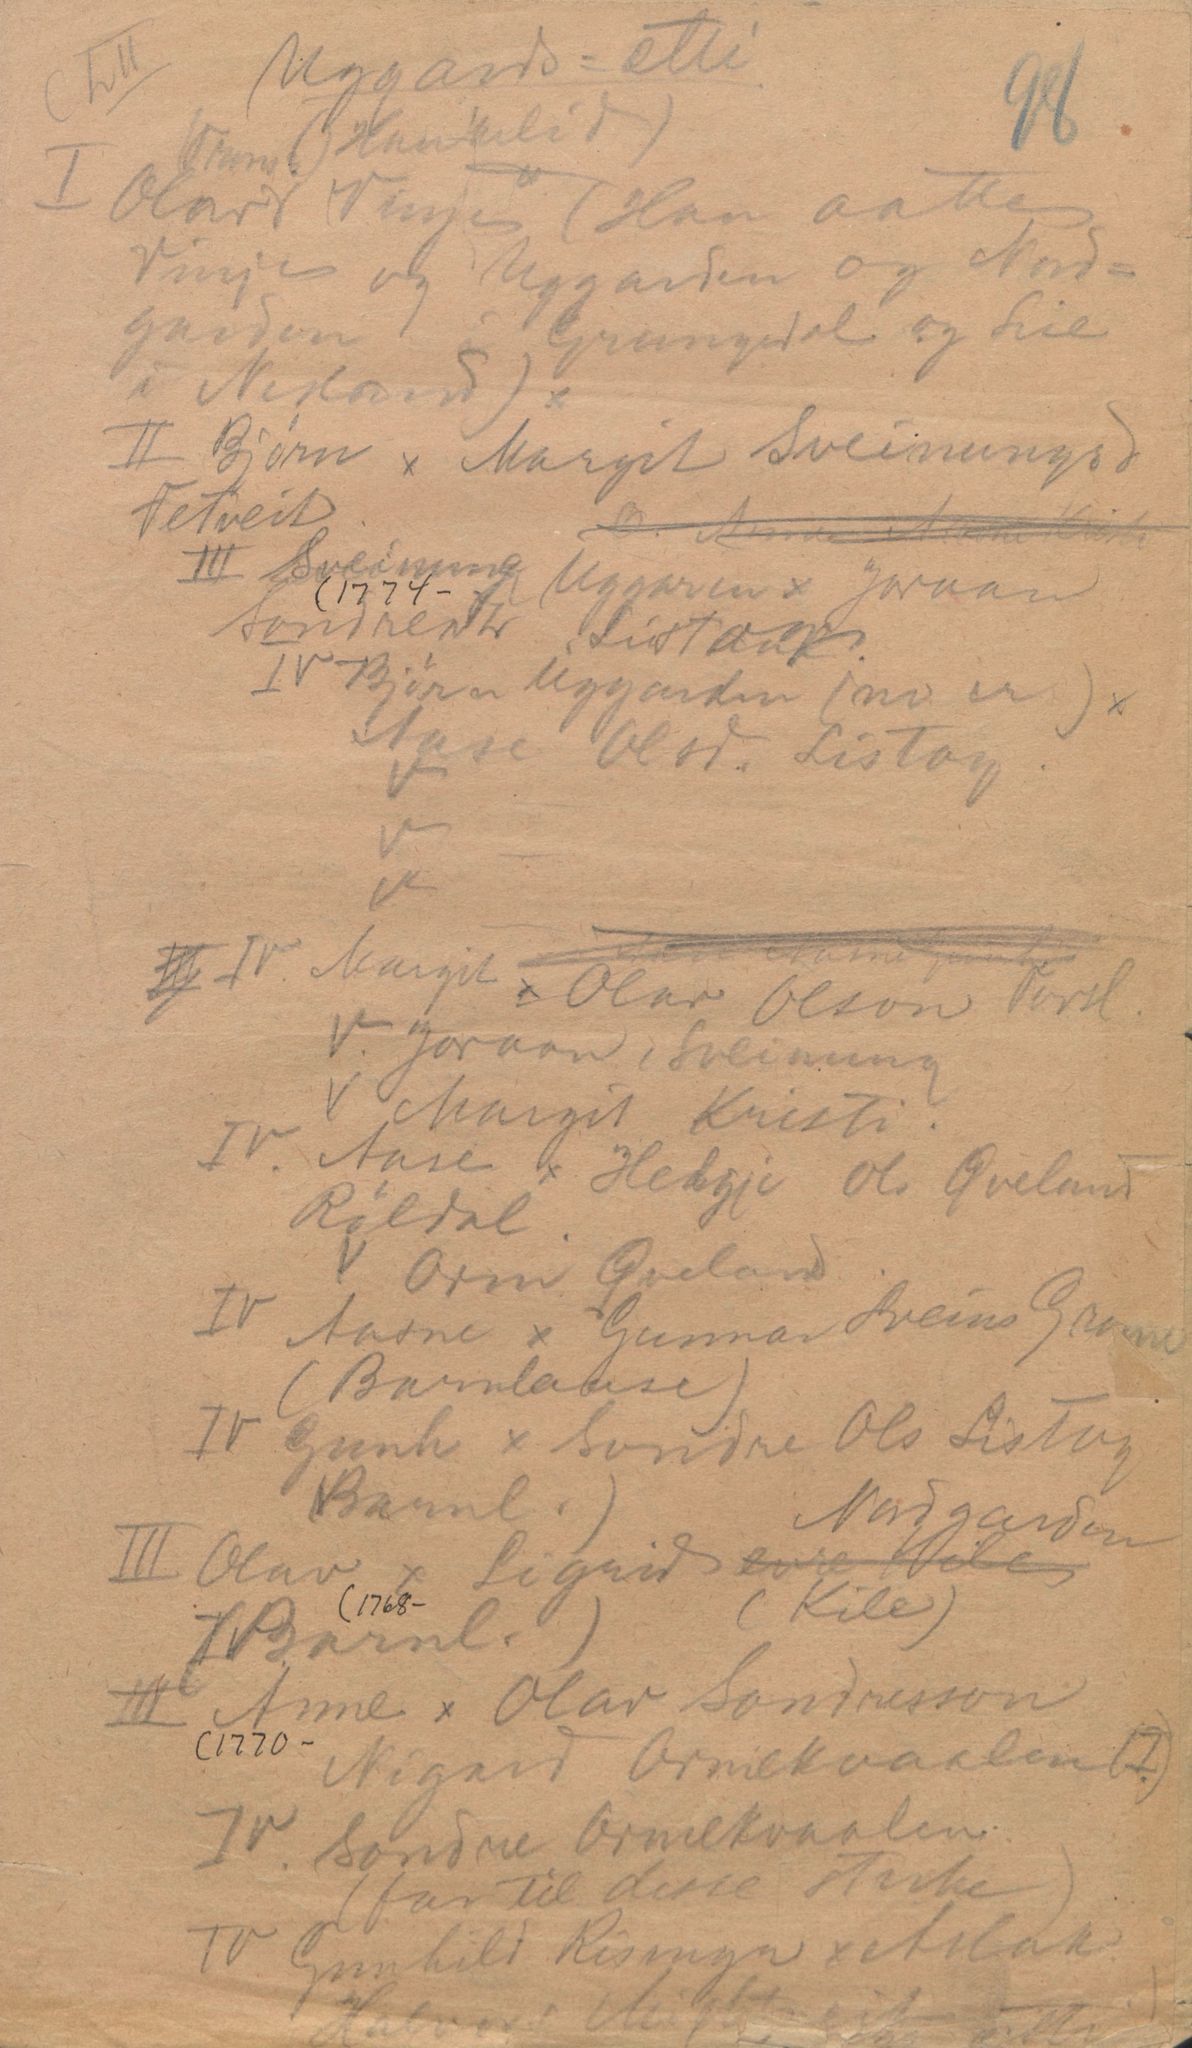 LII
Uggards-etti
98
(Haukelid)
I Olav Vinje (Han aatte
Vinje og Uggarden og Nord=
garden i Grungedal og Lie
i Nesland) x
II Bjørn x Margit Sveinungsd
Tetveit
III Sveinung Uggaren x Joraan
(1774-
Sondresdtr Listaak.
IV Bjørn Uggarden (no er) x
Aase Olsd. Listog.
V
V
V
IV. Margit x Olav Olson
V. Joraan, Sveinung
V Margit Kristi.
IV. Aase x Helgje Ols Qveland
Røldal.
V Orm Qveland.
IV Aasne x Gunnar Sveins
(Barnlause)
IV Gunh x Sondre Ols Listog
(Barnl.)
Nordgarden
III Olav x Sigrid
(1768-
(Kile)
Barnl.)
III Anne x Olav Sondresson
(1770-
Nigard Ormekvaalen (I)
IV. Sondre Ormekvaalen.
(far til desse sterke)
IV Gunhild x Aslak
Halvors